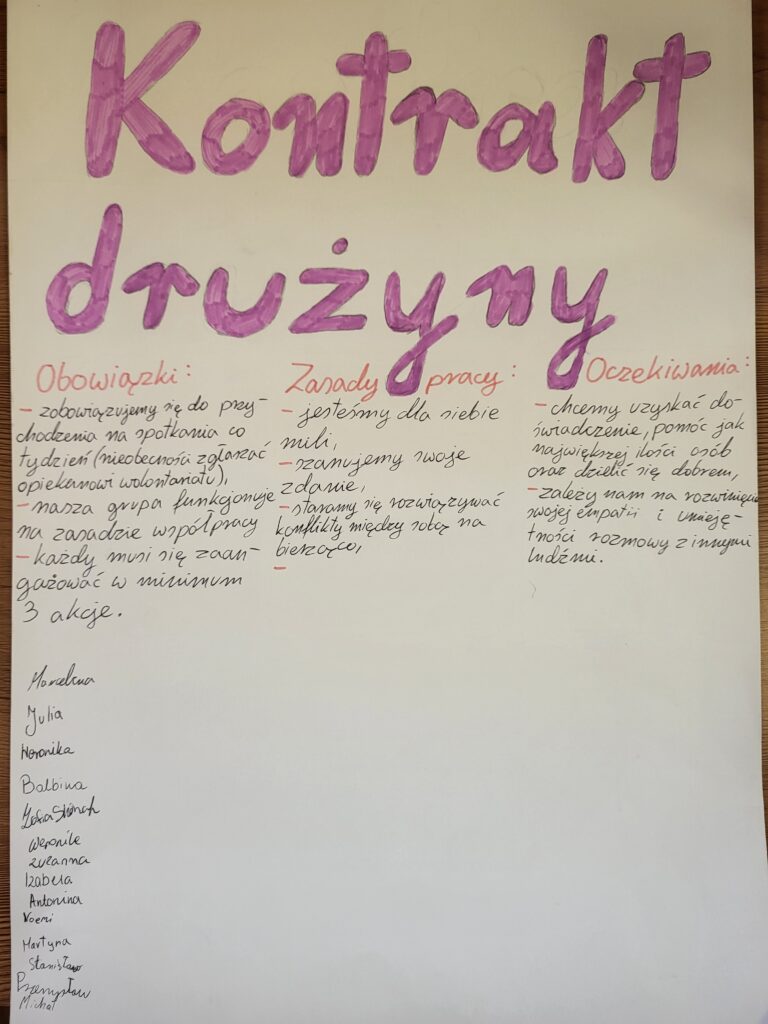 Kontrakt
drużyny
Obowiązki:
- zobowiązujemy się do przy-
chodzenia na spotkania co
tydzień (nieobecności zgłaszać
opiekunowi wolontariatu),
- nasza grupa funkcjonuje
na zasadzie współpracy
- każdy musi się zaan-
gażować w minimum
3 akcje.
Zasady pracy:
- jesteśmy dla siebie
mili,
- szanujemy swoje
zdanie,
- staramy się rozwiązywać
konflikty między sobą na
bieżąco,
-
Oczekiwania:
- chcemy uzyskać do-
świadczenie, pomóc jak
największej ilości osób
oraz dzielić się dobrem,
- zależy nam na rozwinięciu
swojej empatii i umieję-
tności rozmowy z innymi
ludźmi.
Marcelina
Julia
Weronika
Balbina
Zofia
Weronika
Zuzanna
Izabela
Antonina
Noemi
Martyna
Stanisław
Przemysław
Michał